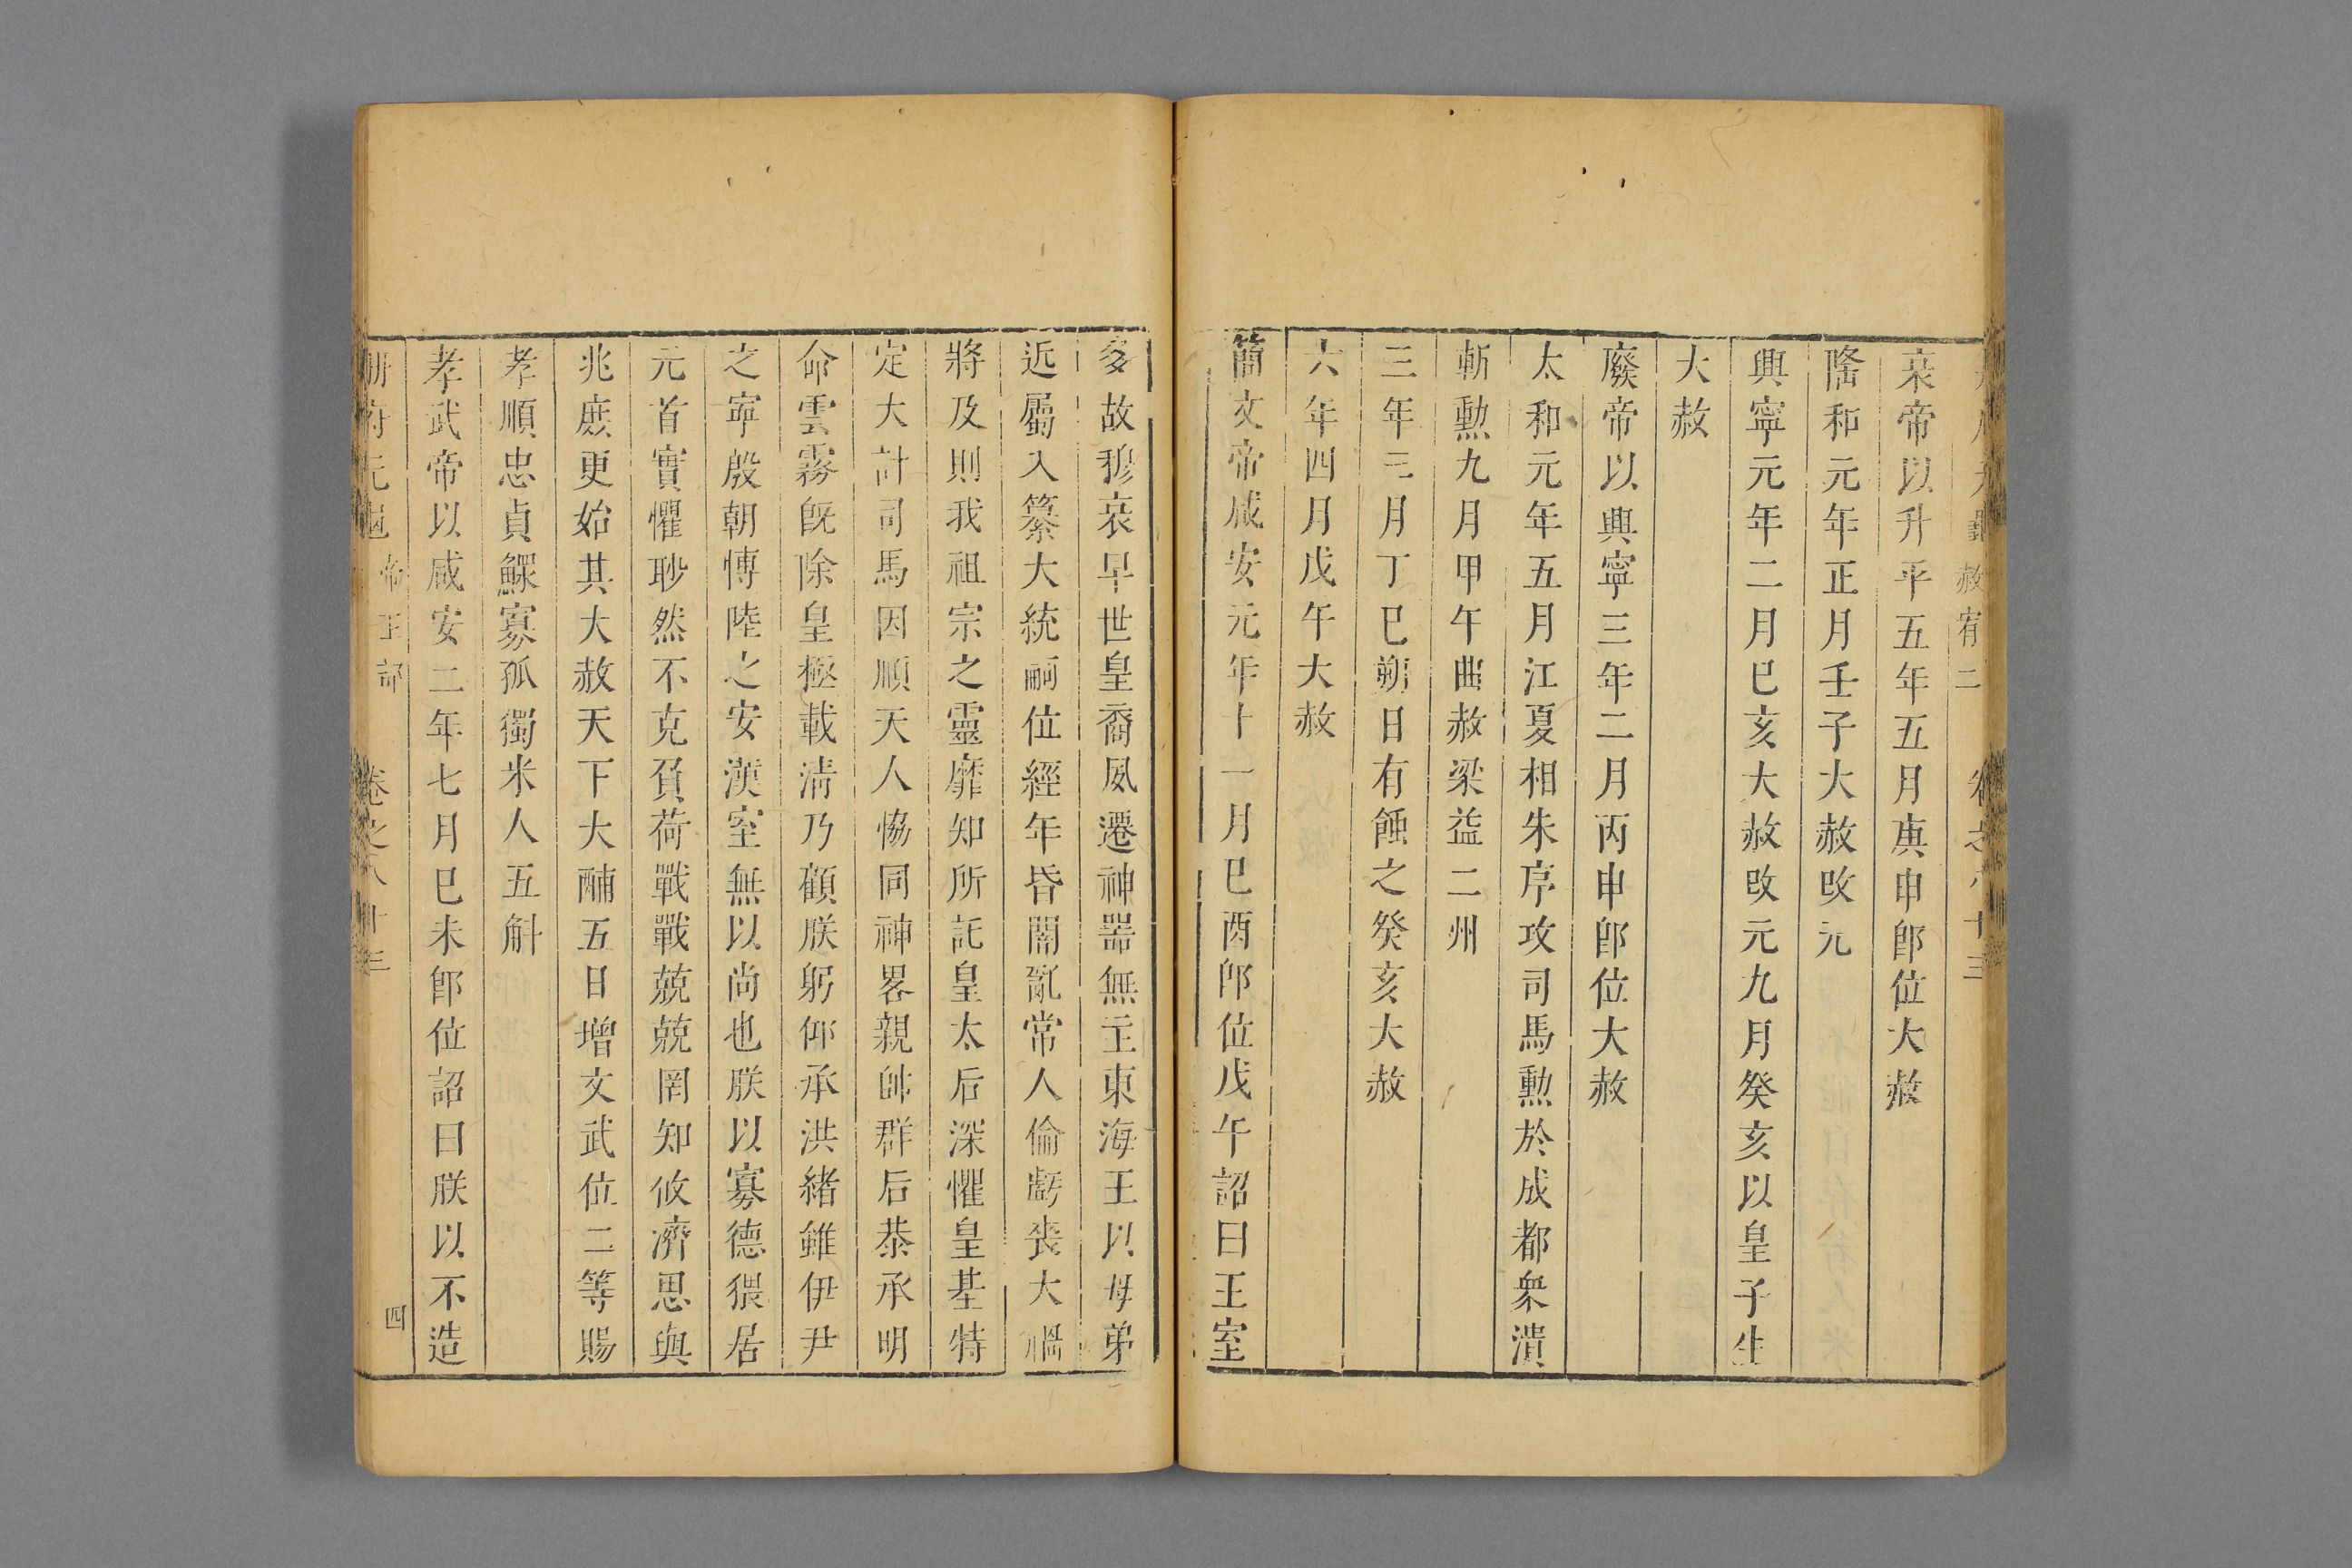 赦宥二 卷之八十三
哀帝以升平五年五月庚申即位大赦
隆和元年正月壬子大赦改元
興寧元年二月巳亥大赦改元九月癸亥以皇子生
大赦
廢帝以興寧三年二月丙申即位大赦
太和元年五月江夏相朱序攻司馬勲於成都衆潰
斬勲九月甲午曲赦梁益二州
三年三月丁巳朔日有蝕之癸亥大赦
六年四月戊午大赦
簡文帝咸安元年十一月巳酉即位戊午詔曰王室
多故穆哀早世皇裔夙遷神器無主東海王以母弟
近屬入纂大統嗣位經年昏闇亂常人倫虧喪大禍
將及則我祖宗之靈靡知所託皇太后深懼皇基特
定大計司馬因順天人恊同神畧親帥群后恭承明
命雲霧旣除皇極載清乃顧朕躬仰承洪緒雖伊尹
之寧殷朝博陸之安漢室無以尚也朕以寡德猥居
元首實懼眇然不克負荷戰戰兢兢罔知攸濟思與
兆庶更始其大赦天下大酺五日增文武位二等賜
孝順忠貞鰥寡孤獨米人五斛
孝武帝以咸安二年七月巳未即位詔曰朕以不造
冊府元龜 帝王部 卷之八十三 四